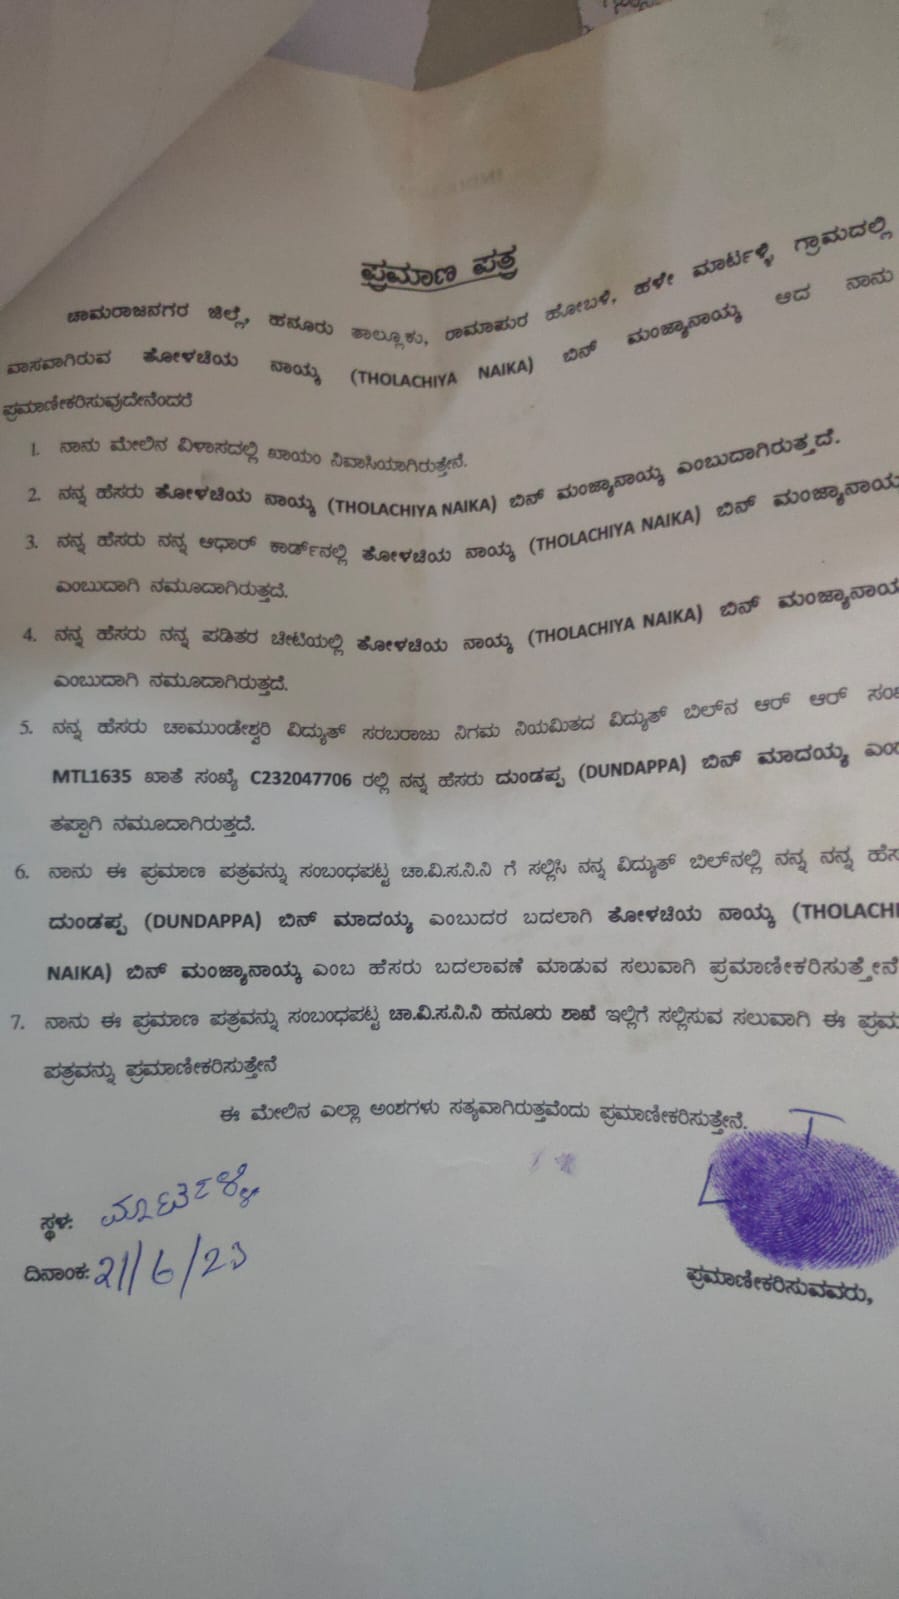 ಪ್ರಮಾಣ ಪತ್ರ
ಚಾಮರಾಜನಗರ ಜಿಲ್ಲೆ, ಹನೂರು ತಾಲ್ಲೂಕು, ರಾಮಾಪುರ ಹೋಬಳಿ, ಹಳೇ ಮಾರ್ಟಳ್ಳಿ ಗ್ರಾಮದಲ್ಲಿ
ವಾಸವಾಗಿರುವ ತೋಳಚಿಯ ನಾಯ್ಕ (THOLACHIYA NAIKA) ಬಿನ್ ಮಂಜ್ಯಾನಾಯ್ಕ ಆದ ನಾನು
ಪ್ರಮಾಣೀಕರಿಸುವುದೇನೆಂದರೆ
1. ನಾನು ಮೇಲಿನ ವಿಳಾಸದಲ್ಲಿ ಖಾಯಂ ನಿವಾಸಿಯಾಗಿರುತ್ತೇನೆ.
2. ನನ್ನ ಹೆಸರು ತೋಳಚಿಯ ನಾಯ್ಕ (THOLACHIYA NAIKA) ಬಿನ್ ಮಂಜ್ಯಾನಾಯ್ಕ ಎಂಬುದಾಗಿರುತ್ತದೆ.
3. ನನ್ನ ಹೆಸರು ನನ್ನ ಆಧಾರ್ ಕಾರ್ಡ್‌ನಲ್ಲಿ ತೋಳಚಿಯ ನಾಯ್ಕ (THOLACHIYA NAIKA) ಬಿನ್ ಮಂಜ್ಯಾನಾಯ
ಎಂಬುದಾಗಿ ನಮೂದಾಗಿರುತ್ತದೆ.
4. ನನ್ನ ಹೆಸರು ನನ್ನ ಪಡಿತರ ಚೀಟಿಯಲ್ಲಿ ತೋಳಚಿಯ ನಾಯ್ಕ (THOLACHIYA NAIKA) ಬಿನ್ ಮಂಜ್ಯಾನಾಯ
ಎಂಬುದಾಗಿ ನಮೂದಾಗಿರುತ್ತದೆ.
5. ನನ್ನ ಹೆಸರು ಚಾಮುಂಡೇಶ್ವರಿ ವಿದ್ಯುತ್ ಸರಬರಾಜು ನಿಗಮ ನಿಯಮಿತದ ವಿದ್ಯುತ್ ಬಿಲ್‌ನ ಆರ್ ಆರ್ ಸಂ
MTL1635 ಖಾತೆ ಸಂಖ್ಯೆ C232047706 ರಲ್ಲಿ ನನ್ನ ಹೆಸರು ದುಂಡಪ್ಪ (DUNDAPPA) ಬಿನ್ ಮಾದಯ್ಯ ಎಂ
ತಪ್ಪಾಗಿ ನಮೂದಾಗಿರುತ್ತದೆ.
6. ನಾನು ಈ ಪ್ರಮಾಣ ಪತ್ರವನ್ನು ಸಂಬಂಧಪಟ್ಟ ಚಾ.ವಿ.ಸ.ನಿ.ನಿ ಗೆ ಸಲ್ಲಿಸಿ ನನ್ನ ವಿದ್ಯುತ್ ಬಿಲ್‌ನಲ್ಲಿ ನನ್ನ ನನ್ನ ಹೆಸ
ದುಂಡಪ್ಪ (DUNDAPPA) ಬಿನ್ ಮಾದಯ್ಯ ಎಂಬುದರ ಬದಲಾಗಿ ತೋಳಚಿಯ ನಾಯ್ಕ (THOLACHI
NAIKA) ಬಿನ್ ಮಂಜ್ಯಾನಾಯ್ಕ ಎಂಬ ಹೆಸರು ಬದಲಾವಣೆ ಮಾಡುವ ಸಲುವಾಗಿ ಪ್ರಮಾಣೀಕರಿಸುತ್ತೇನೆ
7. ನಾನು ಈ ಪ್ರಮಾಣ ಪತ್ರವನ್ನು ಸಂಬಂಧಪಟ್ಟ ಚಾ.ವಿ.ಸ.ನಿ.ನಿ ಹನೂರು ಶಾಖೆ ಇಲ್ಲಿಗೆ ಸಲ್ಲಿಸುವ ಸಲುವಾಗಿ ಈ ಪ್ರಮ
ಪತ್ರವನ್ನು ಪ್ರಮಾಣೀಕರಿಸುತ್ತೇನೆ
ಈ ಮೇಲಿನ ಎಲ್ಲಾ ಅಂಶಗಳು ಸತ್ಯವಾಗಿರುತ್ತವೆಂದು ಪ್ರಮಾಣೀಕರಿಸುತ್ತೇನೆ.
L T
ಸ್ಥಳ: ಮಾರ್ಟಳ್ಳಿ
ದಿನಾಂಕ: 21/6/23
ಪ್ರಮಾಣೀಕರಿಸುವವರು,